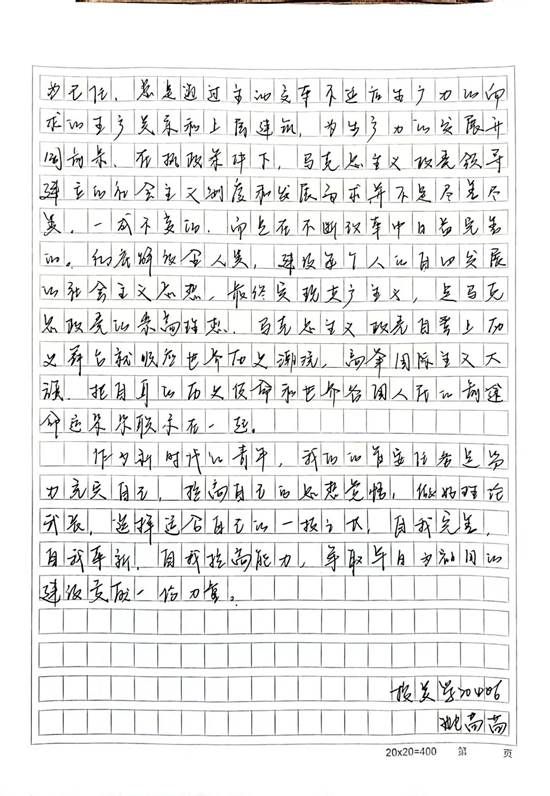 为己任，总是通过主动变革不适应生产力的需
求的生产关系和上层建筑，为生产力的发展开
阔前景。在执政条件下，马克思主义政党领导
建立的社会主义制度和发展需求并不是尽善尽
美，一成不变的，而是在不断改革中日益完善
的。彻底解放全人类，建设每个人的自由发展
的社会主义思想，最终实现共产主义，是马克
思政党的崇高理想。马克思主义政党自登上历
史舞台就顺应世界历史潮流，高举国际主义大
旗，把自身的历史使命和世界各国人民的前途
命运紧紧联系在一起。
作为新时代的青年，我们的首要任务是努
力充实自己，提高自己的思想觉悟，做好理论
武装，选择适合自己的一技之长，自我完善，
自我革新，自我提高能力，争取早日为祖国的
建设贡献一份力量。
高
20x20=400 第 页